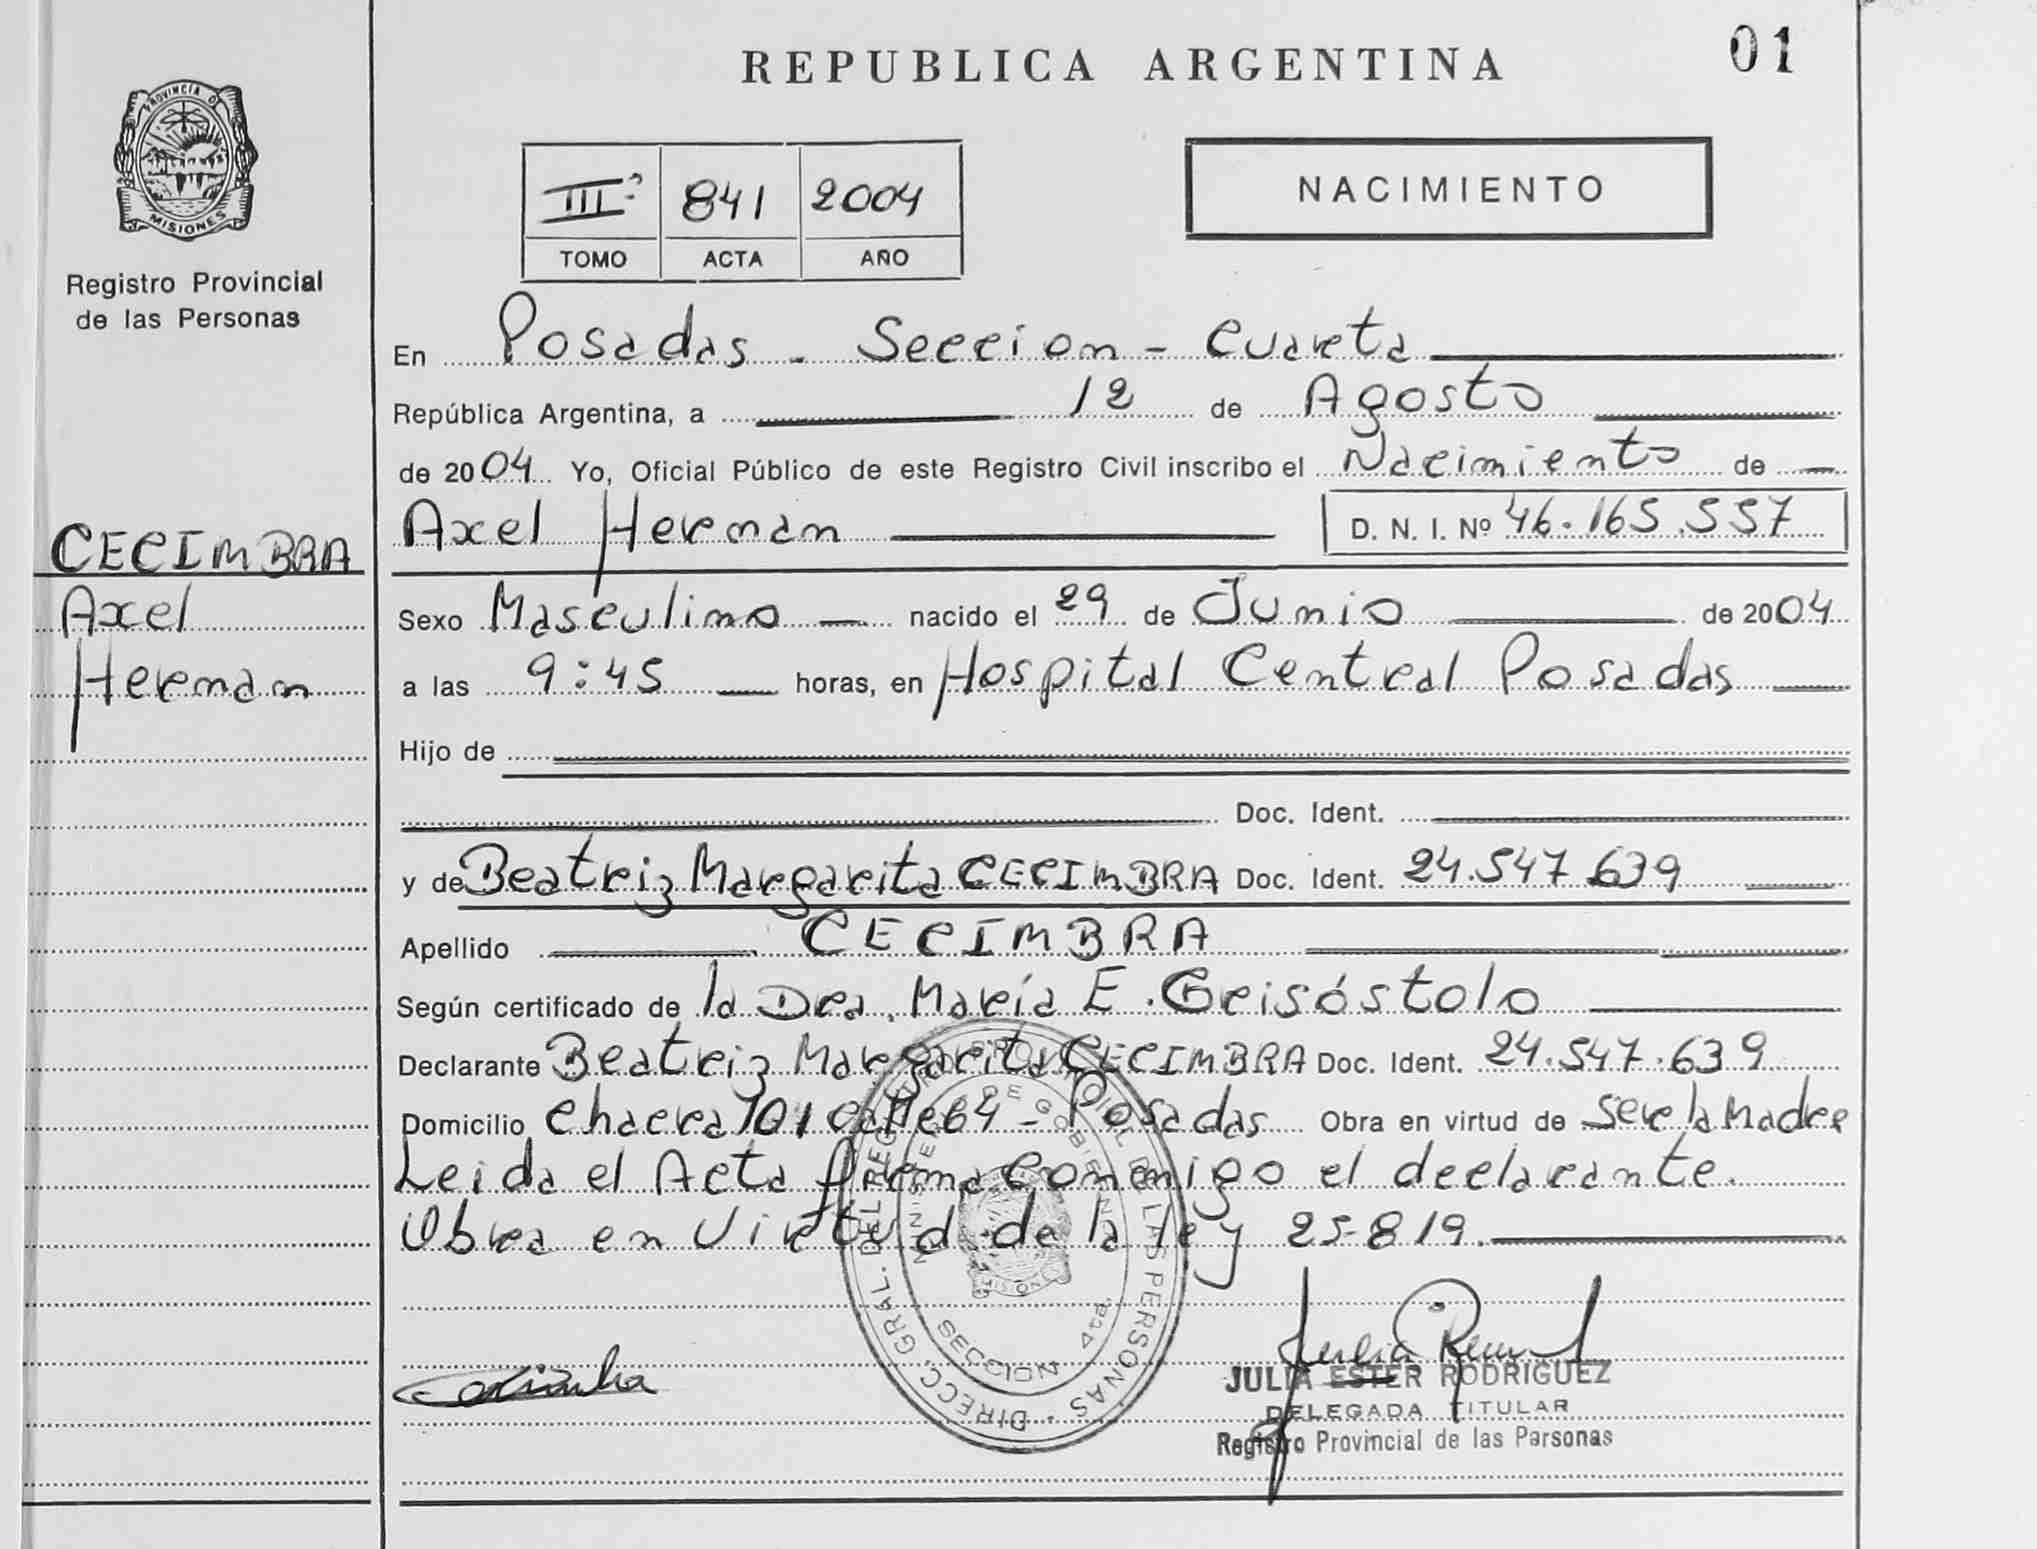 REPUBLICA ARGENTINA
01
PROVINCIA DE
MISIONES
Registro Provincial
de las Personas
III º 841 2004
TOMO ACTA AÑO
NACIMIENTO
En Posadas - Seccion - Cuarta
República Argentina, a 12 de Agosto
de 2004 Yo, Oficial Público de este Registro Civil inscribo el Nacimiento de
Axel Herman D. N. I. Nº 46.165.557
CECIMBRA
Axel
Herman
Sexo Masculino nacido el 29 de Junio de 2004
a las 9:45 horas, en Hospital Central Posadas
Hijo de
Doc. Ident.
y de Beatriz Margarita CECIMBRA Doc. Ident. 24.547.639
Apellido CECIMBRA
Según certificado de la Dra. María E. Grisóstolo
Declarante Beatriz Margarita CECIMBRA Doc. Ident. 24.547.639
Domicilio Chacra 101 Calle 64 - Posadas Obra en virtud de Ser la Madre
Leida el Acta firma Conmigo el declarante.
Obra en Virtud de la ley 25.819.
DIRECC. GRAL. DEL REGISTRO PROVINCIAL DE LAS PERSONAS
MINISTERIO DE GOBIERNO
SECCION 4ta.
JULIA ESTER RODRIGUEZ
DELEGADA TITULAR
Registro Provincial de las Personas